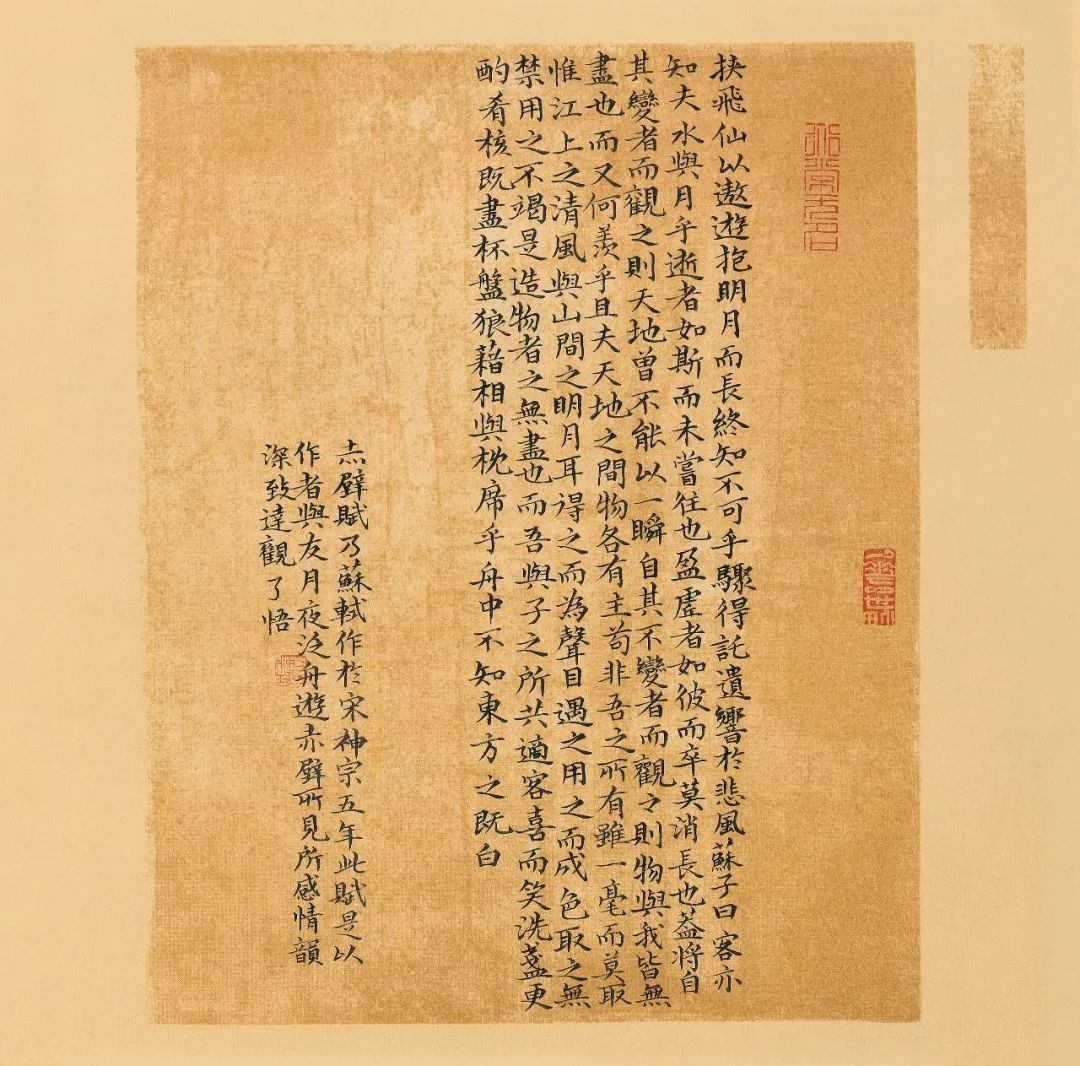 挟飛仙以遨遊抱明月而長終知不可乎驟得託遺響於悲風蘇子曰客亦
知夫水與月乎逝者如斯而未嘗往也盈虛者如彼而卒莫消長也蓋將自
其變者而觀之則天地曾不能以一瞬自其不變者而觀々則物與我皆無
盡也而又何羨乎且夫天地之間物各有主苟非吾之所有雖一毫而莫取
惟江上之清風與山間之明月耳得之而為聲目遇之用之而成色取之無
禁用之不竭是造物者之無盡也而吾與子之所共適客喜而笑洗盞更
酌肴核既盡杯盤狼藉相與枕席乎舟中不知東方之既白
赤壁賦乃蘇軾作於宋神宗五年此賦是以
作者與友月夜泛舟遊赤壁所見所感情韻
深致達觀了悟